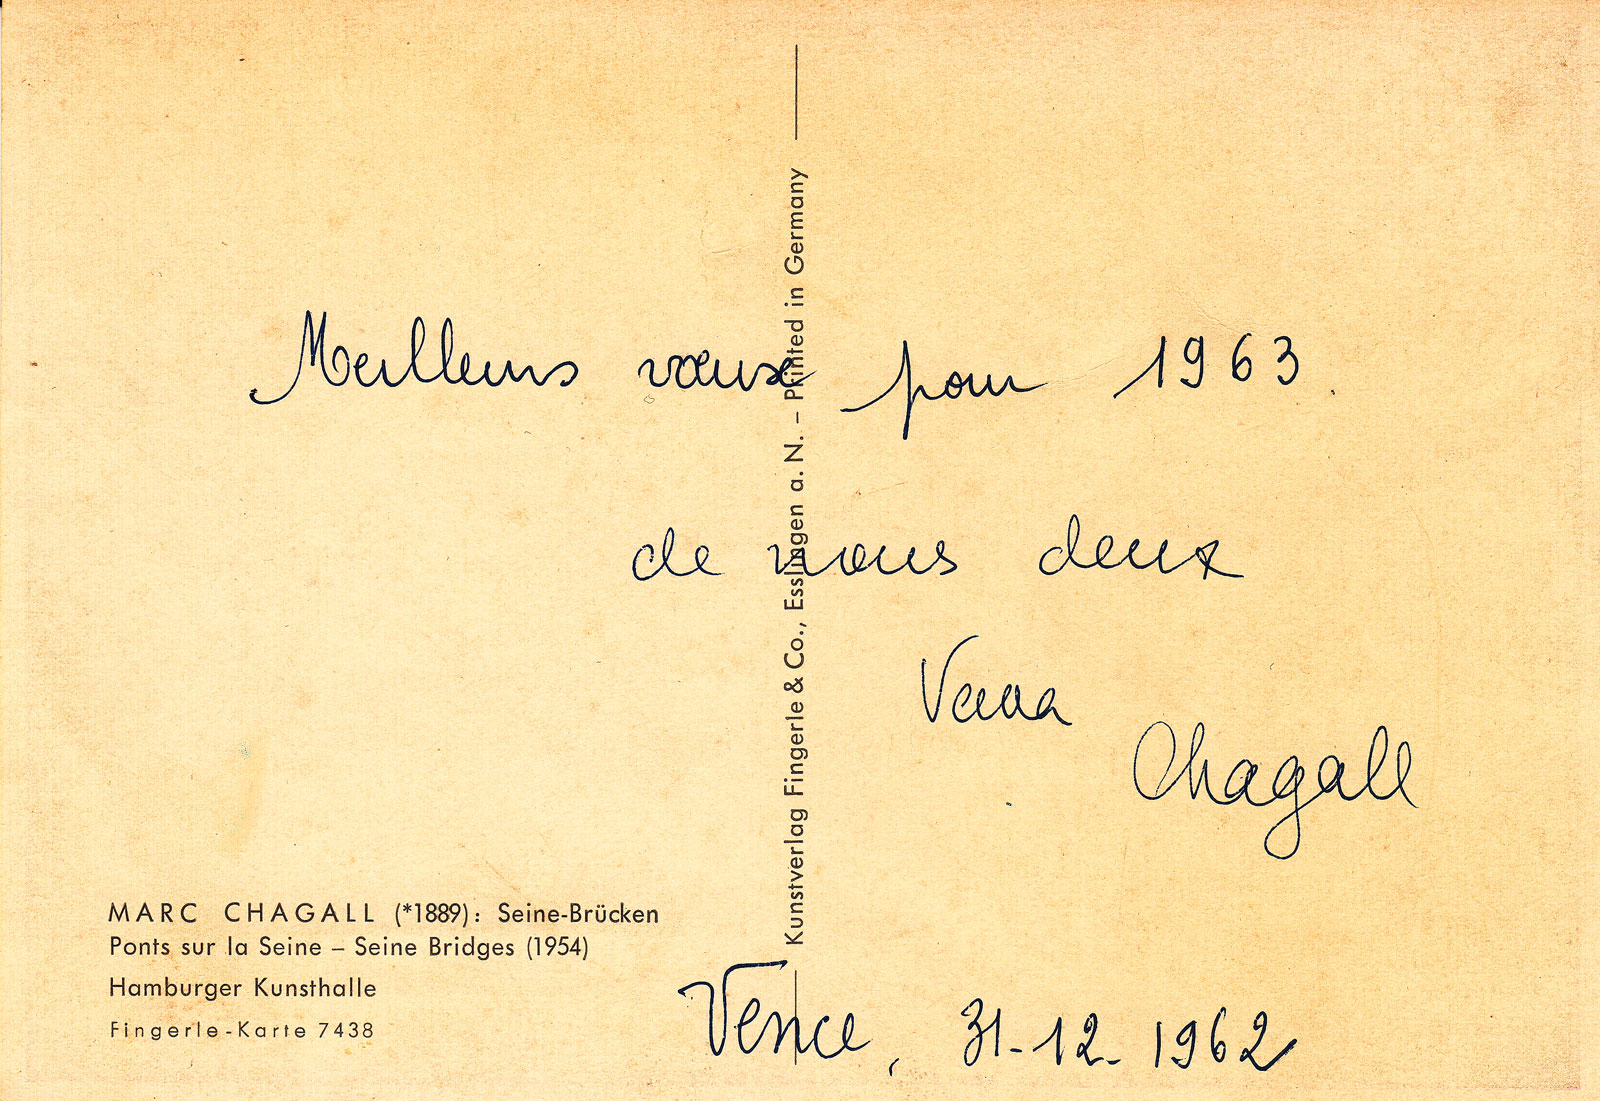 Meilleurs vœux pour 1963
de nous deux
Vava
Chagall
Vence, 31-12-1962
MARC CHAGALL (*1889): Seine-Brücken
Ponts sur la Seine – Seine Bridges (1954)
Hamburger Kunsthalle
Fingerle-Karte 7438
Kunstverlag Fingerle & Co., Esslingen a. N. – Printed in Germany